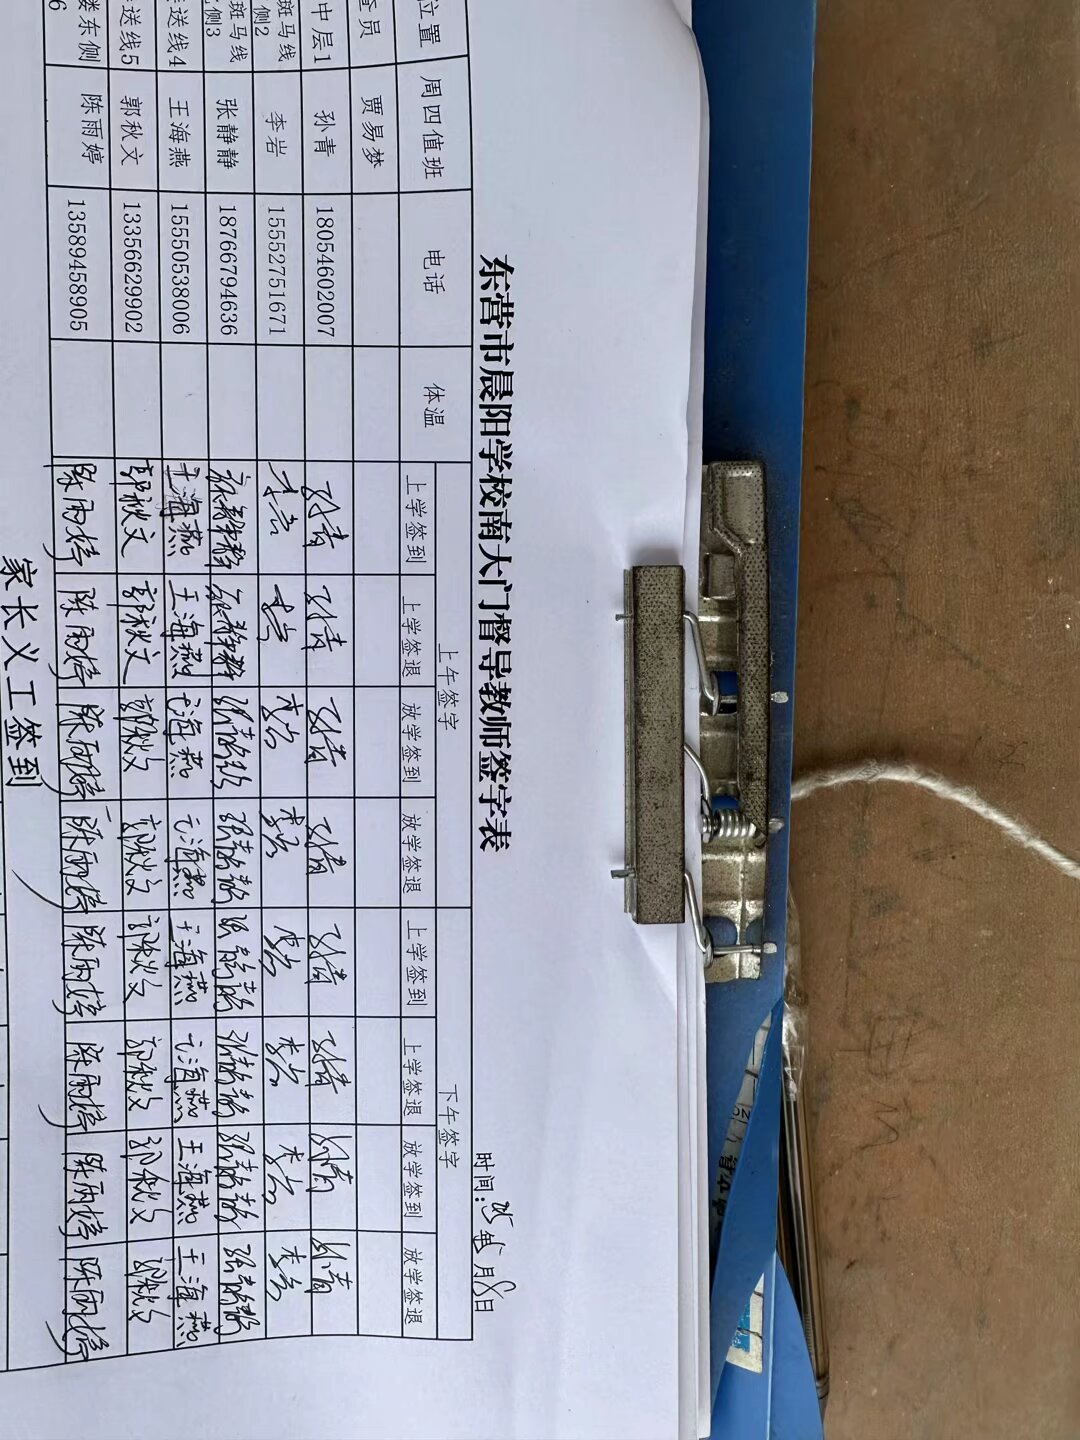 东营市晨阳学校南大门督导教师签字表
时间: 年 月 日
位置 周四值班 电话 体温 上午签字 下午签字
上学签到 上学签退 放学签到 放学签退 上学签到 上学签退 放学签到 放学签退
查员 贾易梦
中层1 孙青 18054602007 孙青 孙青 孙青 孙青 孙青 孙青 孙青 孙青
斑马线 侧2 李岩 15552751671 李岩 李岩 李岩 李岩 李岩 李岩 李岩 李岩
斑马线 侧3 张静静 18766794636 张静静 张静静 张静静 张静静 张静静 张静静 张静静 张静静
送线4 王海燕 15550538006 王海燕 王海燕 王海燕 王海燕 王海燕 王海燕 王海燕 王海燕
送线5 郭秋文 13356629902 郭秋文 郭秋文 郭秋文 郭秋文 郭秋文 郭秋文 郭秋文 郭秋文
楼东侧 6 陈雨婷 13589458905 陈雨婷 陈雨婷 陈雨婷 陈雨婷 陈雨婷 陈雨婷 陈雨婷 陈雨婷
家长义工签到